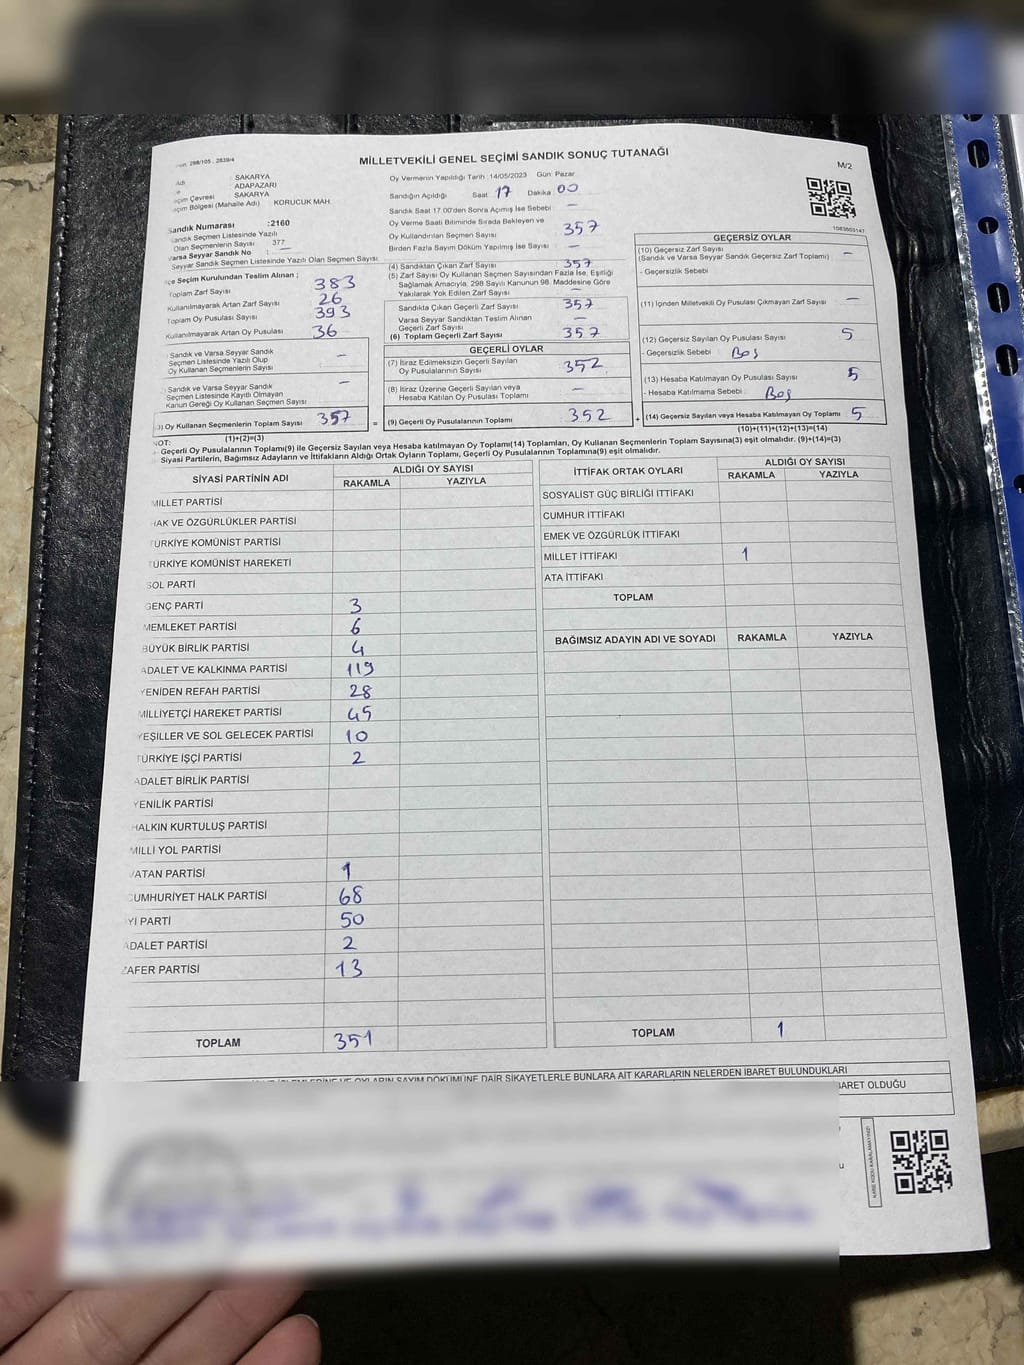 298/105 . 2839/4
MİLLETVEKİLİ GENEL SEÇİMİ SANDIK SONUÇ TUTANAĞI
M/2
: SAKARYA
ADAPAZARI
Çevresi : SAKARYA
Bölgesi (Mahalle Adı) KORUCUK MAH.
Sandık Numarası :2160
Sandık Seçmen Listesinde Yazılı
Olan Seçmenlerin Sayısı 377
Varsa Seyyar Sandık No : —
Seyyar Sandık Seçmen Listesinde Yazılı Olan Seçmen Sayısı:
Seçim Kurulundan Teslim Alınan ;
Toplam Zarf Sayısı 383
Kullanılmayarak Artan Zarf Sayısı 26
Toplam Oy Pusulası Sayısı 393
Kullanılmayarak Artan Oy Pusulası 36
Sandık ve Varsa Seyyar Sandık
Seçmen Listesinde Yazılı Olup
Oy Kullanan Seçmenlerin Sayısı —
Sandık ve Varsa Seyyar Sandık
Seçmen Listesinde Kayıtlı Olmayan
Kanun Gereği Oy Kullanan Seçmen Sayısı —
3) Oy Kullanan Seçmenlerin Toplam Sayısı 357 =
(1)+(2)=(3)
Oy Vermenin Yapıldığı Tarih :14/05/2023 Gün: Pazar
Sandığın Açıldığı Saat 17 Dakika 00
Sandık Saat 17.00'den Sonra Açımış İse Sebebi : —
Oy Verme Saati Bitiminde Sırada Bekleyen ve
Oy Kullandırılan Seçmen Sayısı 357
Birden Fazla Sayım Döküm Yapılmış İse Sayısı : —
(4) Sandıktan Çıkan Zarf Sayısı 357
(5) Zarf Sayısı Oy Kullanan Seçmen Sayısından Fazla İse, Eşitliği
Sağlamak Amacıyla, 298 Sayılı Kanunun 98. Maddesine Göre
Yakılarak Yok Edilen Zarf Sayısı : —
Sandıkta Çıkan Geçerli Zarf Sayısı 357
Varsa Seyyar Sandıktan Teslim Alınan
Geçerli Zarf Sayısı —
(6) Toplam Geçerli Zarf Sayısı 357
GEÇERLİ OYLAR
(7) İtiraz Edilmeksizin Geçerli Sayılan
Oy Pusulalarının Sayısı: 352
(8) İtiraz Üzerine Geçerli Sayılan veya
Hesaba Katılan Oy Pusulası Toplamı —
(9) Geçerli Oy Pusulalarının Toplamı 352 +
1083003147
GEÇERSİZ OYLAR
(10) Geçersiz Zarf Sayısı
(Sandık ve Varsa Seyyar Sandık Geçersiz Zarf Toplamı) —
- Geçersizlik Sebebi
(11) İçinden Milletvekili Oy Pusulası Çıkmayan Zarf Sayısı —
(12) Geçersiz Sayılan Oy Pusulası Sayısı 5
- Geçersizlik Sebebi : Boş
(13) Hesaba Katılmayan Oy Pusulası Sayısı 5
- Hesaba Katılmama Sebebi : Boş
(14) Geçersiz Sayılan veya Hesaba Katılmayan Oy Toplamı 5
(10)+(11)+(12)+(13)=(14)
NOT:
Geçerli Oy Pusulalarının Toplamı(9) ile Geçersiz Sayılan veya Hesaba katılmayan Oy Toplamı(14) Toplamları, Oy Kullanan Seçmenlerin Toplam Sayısına(3) eşit olmalıdır. (9)+(14)=(3)
Siyasi Partilerin, Bağımsız Adayların ve İttifakların Aldığı Ortak Oyların Toplamı, Geçerli Oy Pusulalarının Toplamına(9) eşit olmalıdır.
SİYASİ PARTİNİN ADI ALDIĞI OY SAYISI
RAKAMLA YAZIYLA
MİLLET PARTİSİ
HAK VE ÖZGÜRLÜKLER PARTİSİ
TÜRKİYE KOMÜNİST PARTİSİ
TÜRKİYE KOMÜNİST HAREKETİ
SOL PARTİ
GENÇ PARTİ 3
MEMLEKET PARTİSİ 6
BÜYÜK BİRLİK PARTİSİ 4
ADALET VE KALKINMA PARTİSİ 119
YENİDEN REFAH PARTİSİ 28
MİLLİYETÇİ HAREKET PARTİSİ 45
YEŞİLLER VE SOL GELECEK PARTİSİ 10
TÜRKİYE İŞÇİ PARTİSİ 2
ADALET BİRLİK PARTİSİ
YENİLİK PARTİSİ
HALKIN KURTULUŞ PARTİSİ
MİLLİ YOL PARTİSİ
VATAN PARTİSİ 1
CUMHURİYET HALK PARTİSİ 68
İYİ PARTİ 50
ADALET PARTİSİ 2
ZAFER PARTİSİ 13
TOPLAM 351
İTTİFAK ORTAK OYLARI ALDIĞI OY SAYISI
RAKAMLA YAZIYLA
SOSYALİST GÜÇ BİRLİĞİ İTTİFAKI
CUMHUR İTTİFAKI
EMEK VE ÖZGÜRLÜK İTTİFAKI
MİLLET İTTİFAKI 1
ATA İTTİFAKI
TOPLAM
BAĞIMSIZ ADAYIN ADI VE SOYADI RAKAMLA YAZIYLA
TOPLAM 1
OYLARIN SAYIM DÖKÜMÜNE DAİR ŞİKAYETLERLE BUNLARA AİT KARARLARIN NELERDEN İBARET BULUNDUKLARI
İBARET OLDUĞU
KARE KODU KARALAMAYINIZ!